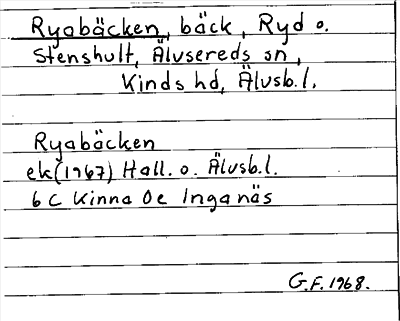 Ryabäcken, bäck, Ryd o.
Stenshult, Älvsereds sn,
Kinds hd, Älvsb.l.
Ryabäcken
ek(1967) Hall. o. Älvsb.l.
6 C Kinna 0e Inganäs
G.F. 1968.